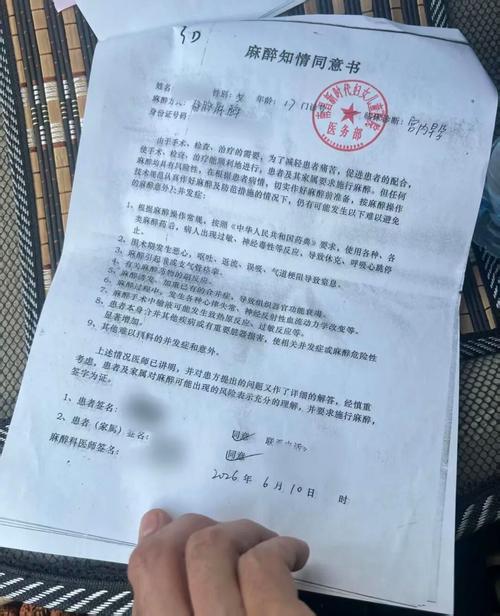 麻醉知情同意书
姓名 性别: 女 年龄: 17 门诊
麻醉方式 静脉麻醉 临床诊断: 宫内早孕
身份证号码
时代妇女儿童
医务部
由于手术、检查、治疗的需要,为了减轻患者痛苦,促进患者的配合,
使手术、检查,治疗能顺利地进行,患者及其家属要求施行麻醉。但任何
麻醉均具有风险性,在根据患者病情,切实作好麻醉前准备,按麻醉操作
技术规范认真作好麻醉及防范措施的情况下,仍有可能发生以下难以避免
的麻醉意外上并发症:
1、根据麻醉操作常规,按照《中华人民共和国药典》要求,使用各种、各
类麻醉药语,病人出现过敏、神经毒性等反应,导致休克、呼吸心跳停
止。
2、围术期发生恶心,呕吐、返流、误吸、气道梗阻导致窒息。
3、麻醉引起喉或支气管痉挛。
4、有关麻醉药物的副反应。
5、麻醉诱发、加重已有的合并症,导致组织器官功能衰竭。
6、麻醉过程中,发生各种心律失常、神经反射性血流动力学改变等。
7、麻醉手术中输液可能发生致热原反应、过敏反应等。
8、患者本身合并其他疾病或有重要脏器损害,使相关并发症或麻醉危险性
显著增加。
9、其他难以预料的并发症和意外。
上述情况医师已讲明,并对患方提出的问题又作了详细的解答,经慎重
考虑,患者及家属对麻醉可能出现的风险表示充分的理解,并要求施行麻醉,
签字为证。
1、患者签名:
2、患者(家属)签名: 同意 联系电话
麻醉科医师签名: 同意
2026 年 6 月 10 日 时